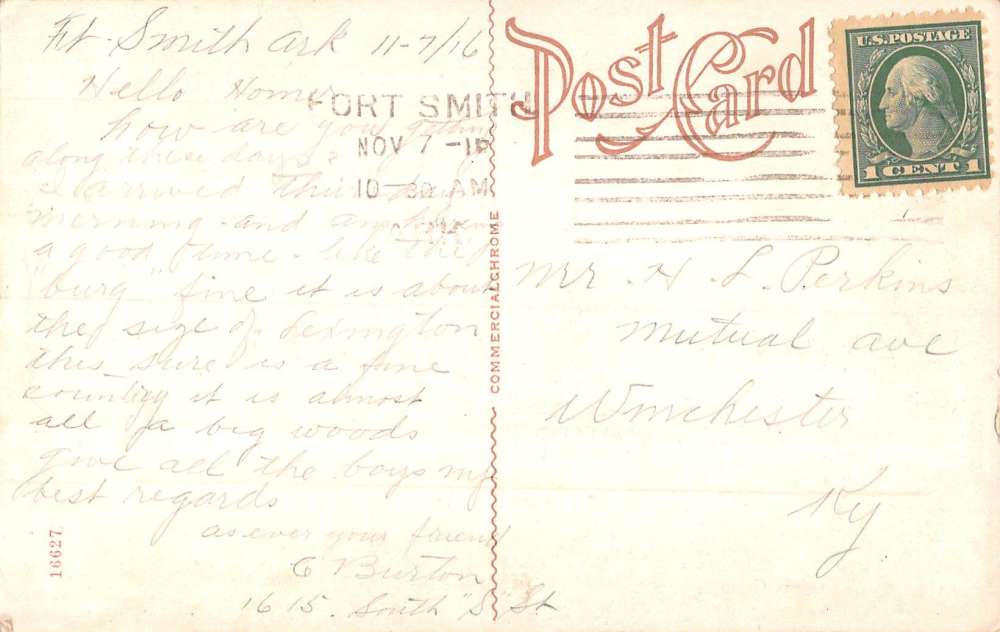 Ft. Smith Ark 11-7/16
Hello Homer
how are you getting
along these days?
I arrived this
morning and am having
a good time. like the
"burg" fine it is about
the size of Lexington
this sure is a fine
country it is almost
all a big woods
give all the boys my
best regards
as ever your friend
C Burton
1615. South "S" St
16627
COMMERCIALCHROME
Post Card
FORT SMITH
NOV 7 -
10 - 30 AM
U.S. POSTAGE
1 CENT 1
Mr. H. L. Perkins
Mutual ave
Winchester
Ky